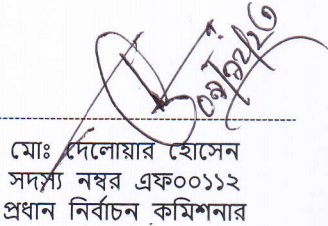 মোঃ দেলোয়ার হোসেন
সদস্য নম্বর এফ০০১১২
প্রধান নির্বাচন কমিশনার